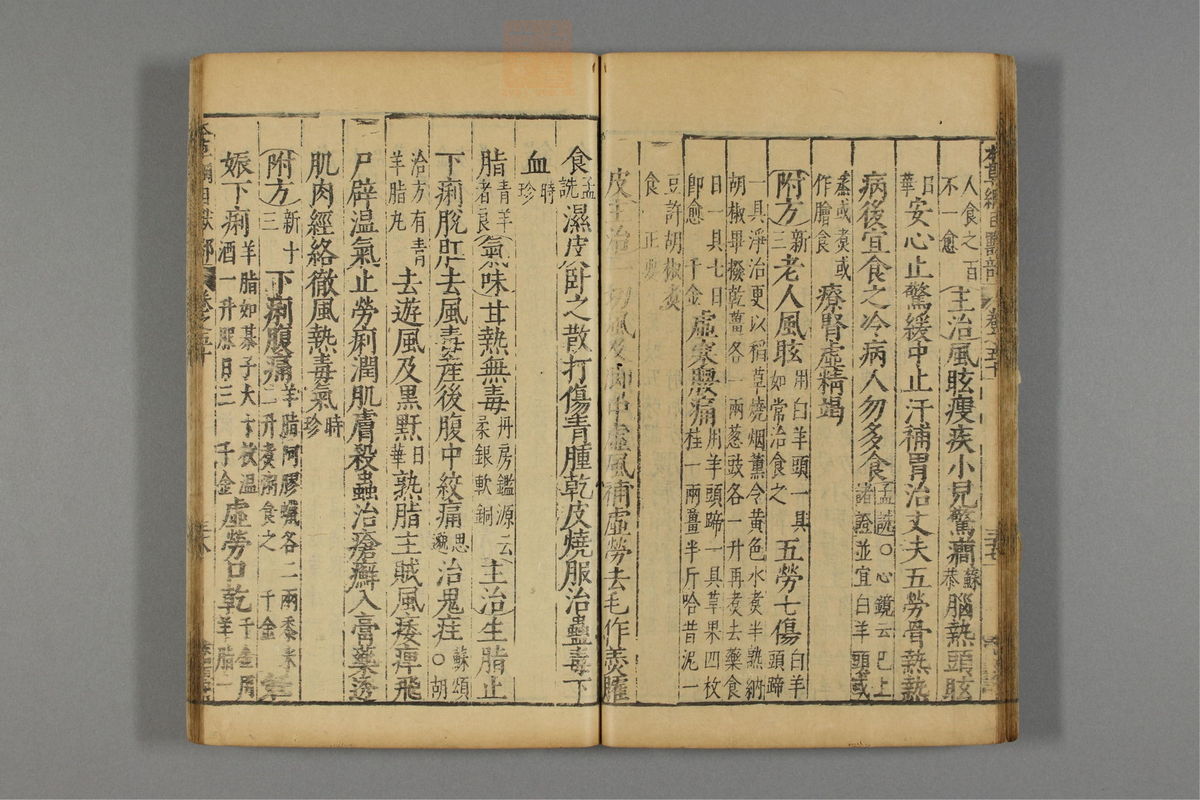 人食之百
不一愈
主治風眩瘦疾小兒驚癎
蘇恭
腦熱頭眩
日華
安心止驚緩中止汗補胃治丈夫五勞骨熱熱
病後宜食之冷病人勿多食
孟詵○心鏡云已上
諸證並宜白羊頭或
蒸或煑或
作膾食
療腎虛精竭
附方
新三
老人風眩
用白羊頭一具
如常治食之
五勞七傷
白羊
頭蹄
一具淨治更以稻草燒烟薰令黄色水煑半熟納
胡椒畢撥乾薑各一兩葱豉各一升再煑去藥食
日一具七日
卽愈 千金
虛寒腰痛
用羊頭蹄一具草果四枚
桂一兩薑半斤哈昔泥一
豆許胡椒煑
食 正要
皮主治一切風及脚中虛風補虛勞去毛作羹臛
食
孟詵
濕皮臥之散打傷青腫乾皮燒服治蠱毒下
血
時珍
脂
青羊
者良
氣味甘熱無毒
丹房鑑源云
柔銀軟銅
主治生脂止
下痢脫肛去風毒産後腹中絞痛
思邈
治鬼疰
蘇頌
○胡
洽方有青
羊脂丸
去遊風及黒䵟
日華
熟脂主賊風痿痺飛
尸辟温氣止勞痢潤肌膚殺蟲治瘡癬入膏藥透
肌肉經絡徹風熱毒氣
時珍
附方
新十
三
下痢腹痛
羊脂阿膠蠟各二兩黍米
二升煑粥食之 千金
娠下痢
羊脂如棊子大十枚温
酒一升服日三 千金
虛勞口乾
千金用
羊脂一